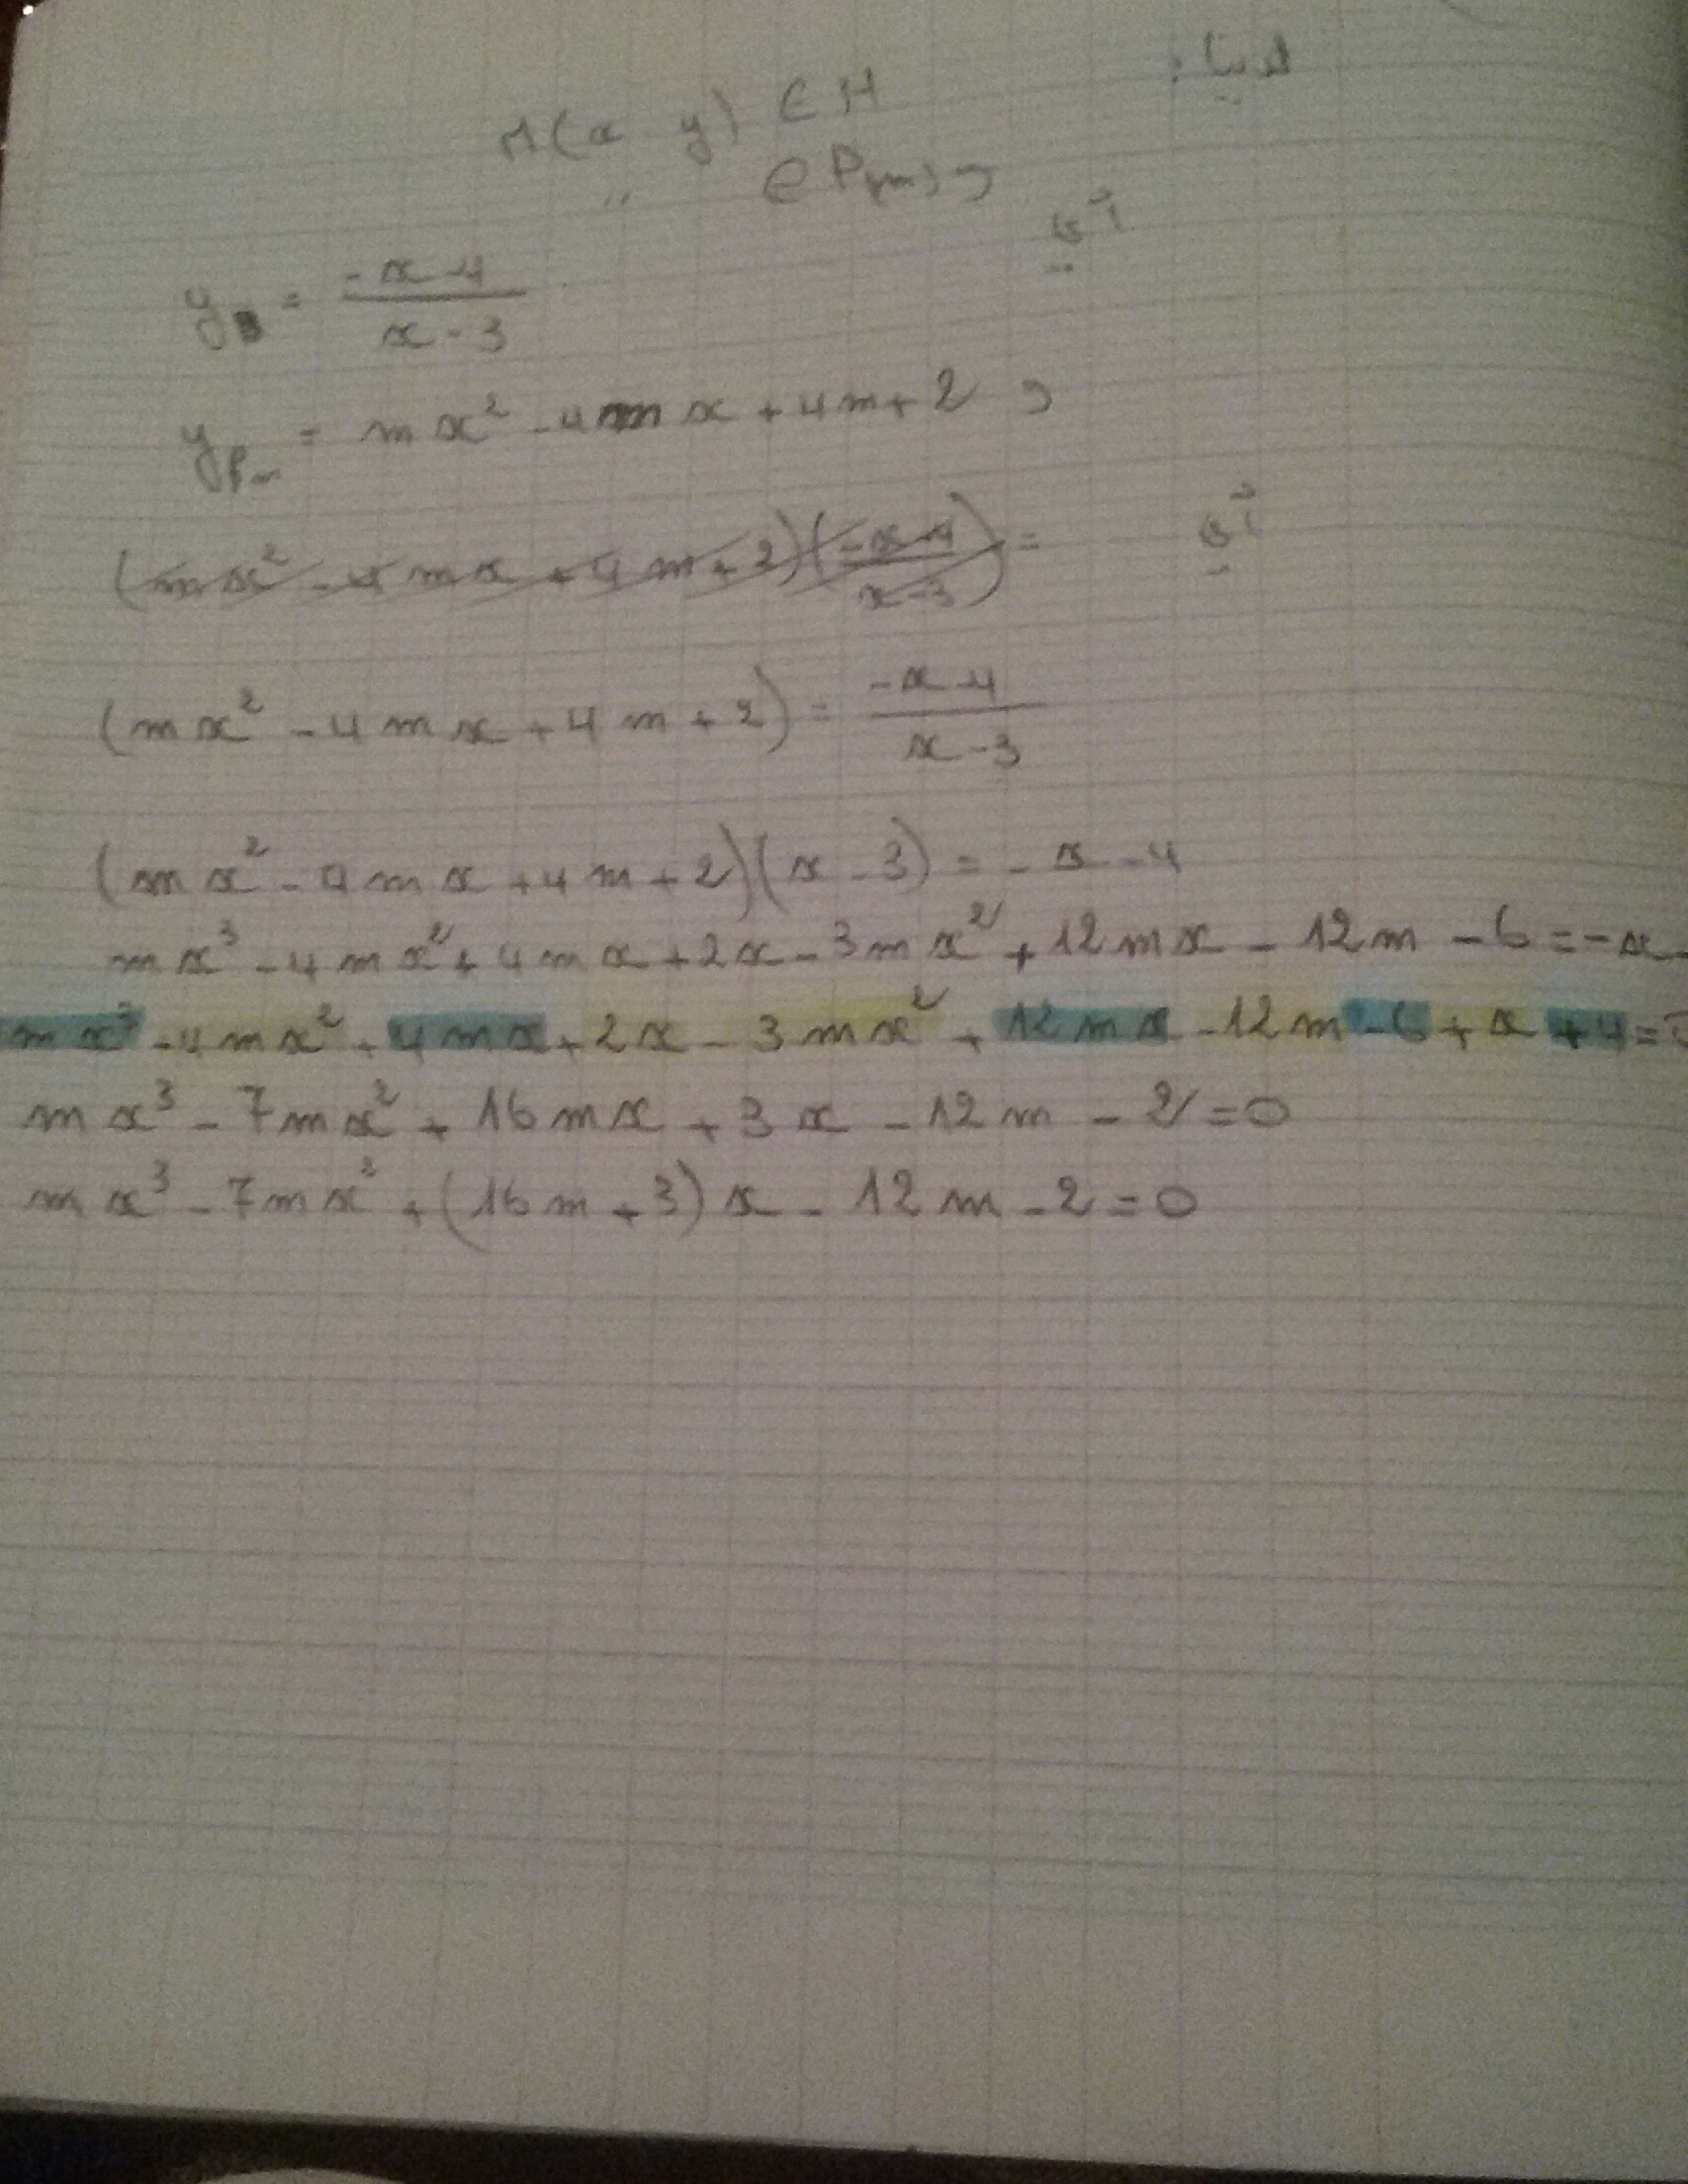 لدينا:
M(x y) ∈ H
" ∈ P(m) و
أي
y = (-x-4)/(x-3)
y_Pm = mx² - 4mx + 4m + 2 و
(mx² - 4mx + 4m + 2)((-x-4)/(x-3)) =
أي
(mx² - 4mx + 4m + 2) = (-x-4)/(x-3)
(mx² - 4mx + 4m + 2)(x - 3) = -x - 4
mx³ - 4mx² + 4mx + 2x - 3mx² + 12mx - 12m - 6 = -x -
mx³ - 4mx² + 4mx + 2x - 3mx² + 12mx - 12m - 6 + x + 4 = 0
mx³ - 7mx² + 16mx + 3x - 12m - 2 = 0
mx³ - 7mx² + (16m + 3)x - 12m - 2 = 0